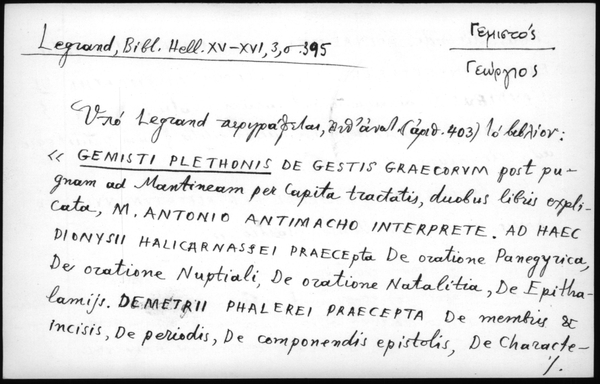 Legrand, Bibl. Hell. XV-XVI, 3, σ. 395
Γεμιστός
Γεώργιος
Ὑπό Legrand περιγράφεται, (ἀριθ. 403) τό βιβλίον:
« GEMISTI PLETHONIS DE GESTIS GRAECORVM post pu-
gnam ad Mantineam per Capita tractatis, duobus libris expli-
cata, M. ANTONIO ANTIMACHO INTERPRETE. AD HAEC
DIONYSII HALICARNASSEI PRAECEPTA De oratione Panegyrica,
De oratione Nuptiali, De oratione Natalitia, De Epitha-
lamijs. DEMETRII PHALEREI PRAECEPTA De membris &
incisis, De periodis, De componendis epistolis, De Characte-
./.